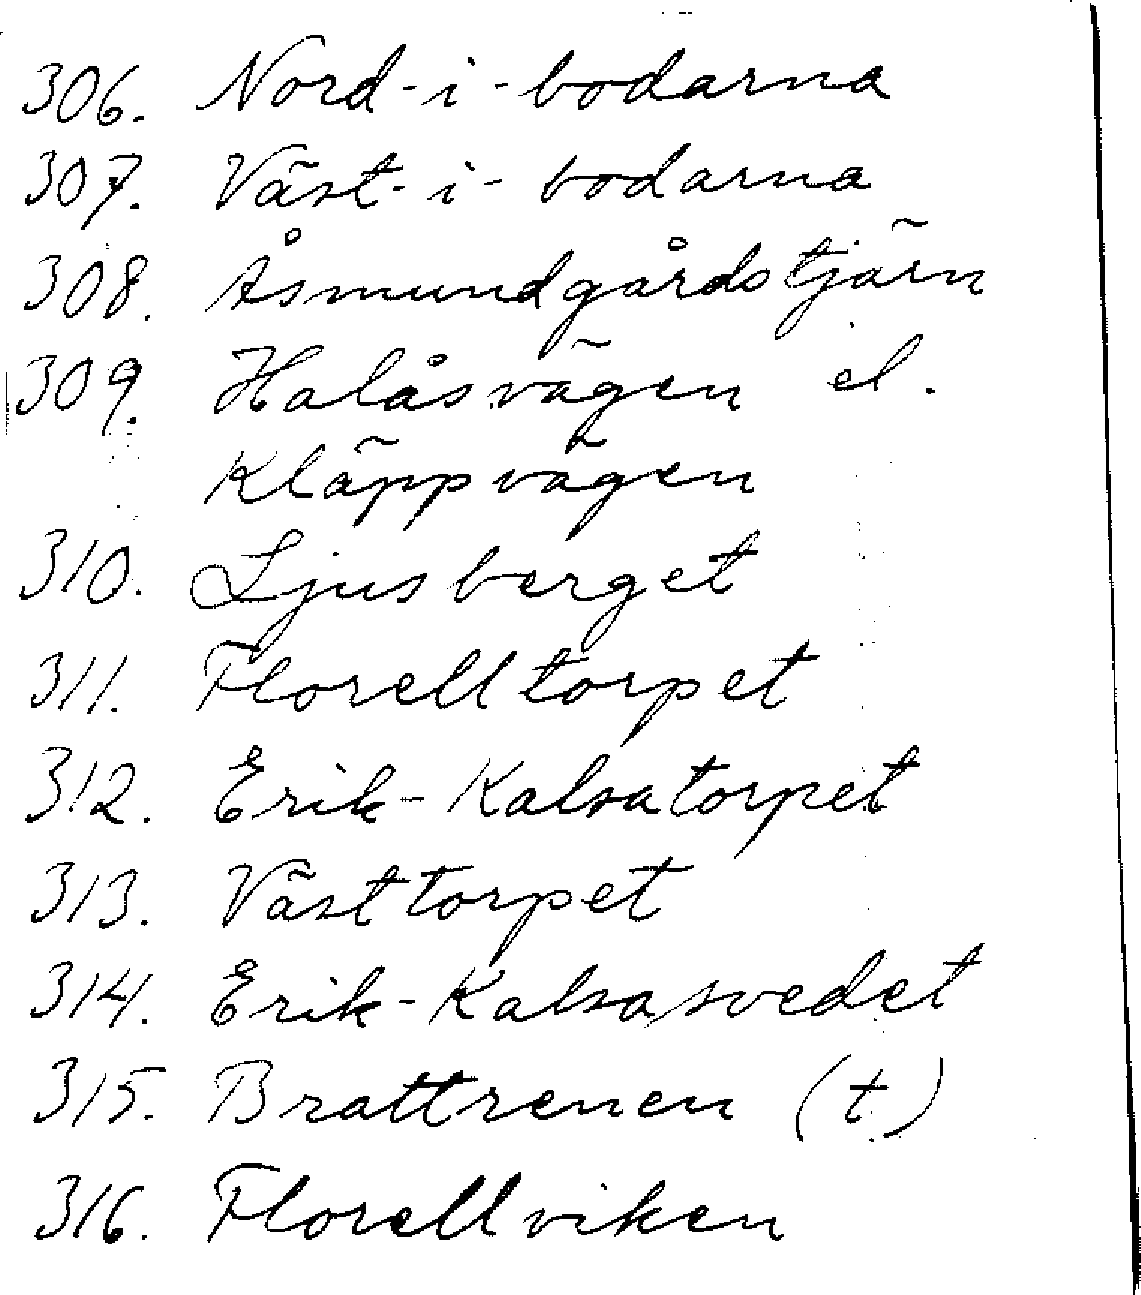 306. Nord-i-bodarna
307. Väst-i-bodarna
308. Åsmundgårdstjärn
309. Halåsvägen el.
Kläppvägen
310. Ljusberget
311. Florelltorpet
312. Erik-Kalsatorpet
313. Västtorpet
314. Erik-Kalsasvedet
315. Brattrenen (t.)
316. Florellviken